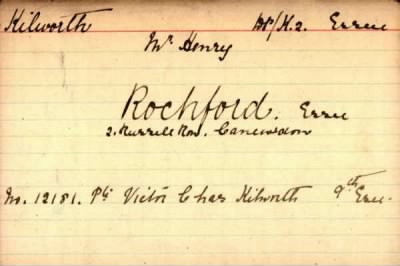 Kilworth H2. Essex
Mr Henry
Rochford. Essex
2. Russell Row. Canewdon
No. 12181. Pte Victor Chas Kilworth 9th Essex.